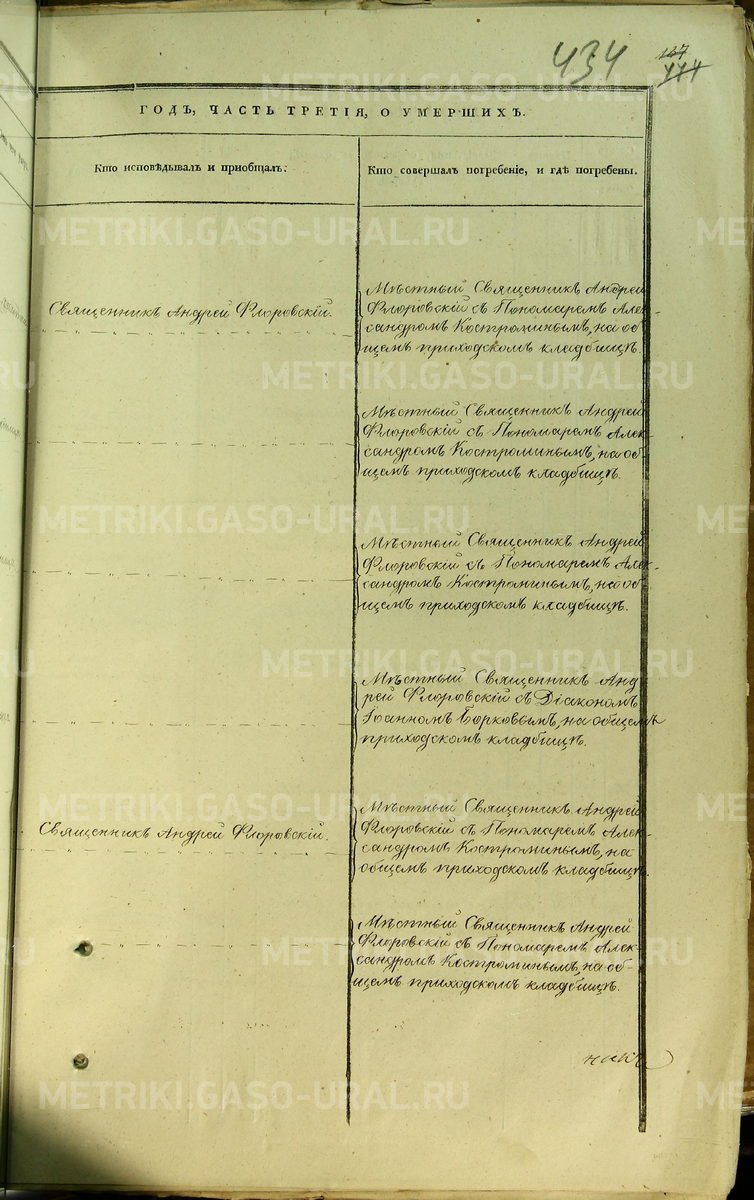 434
167
444
ГОДЪ, ЧАСТЬ ТРЕТІЯ, О УМЕРШИХЪ.
Кто исповѣдывалъ и приобщалъ.
Кто совершалъ погребеніе, и гдѣ погребены.
Священникъ Андрей Флоровскій.
Мѣстный Священникъ Андрей
Флоровскій съ Пономаремъ Алек-
сандромъ Костроминымъ, на об
щемъ приходскомъ кладбищѣ.
Мѣстный Священникъ Андрей
Флоровскій съ Пономаремъ Алек-
сандромъ Костроминымъ, на об
щемъ приходскомъ кладбищѣ.
Мѣстный Священникъ Андрей
Флоровскій съ Пономаремъ Алек-
сандромъ Костроминымъ, на об
щемъ приходскомъ кладбищѣ.
Мѣстный Священникъ Анд
рей Флоровскій съ Діакономъ
Іоанномъ Борковымъ, на общемъ
приходскомъ кладбищѣ.
Священникъ Андрей Флоровскій.
Мѣстный Священникъ Андрей
Флоровскій съ Пономаремъ Алек-
сандромъ Костроминымъ, на
общемъ приходскомъ кладбищѣ.
Мѣстный Священникъ Андрей
Флоровскій съ Пономаремъ Алек-
сандромъ Костроминымъ, на об-
щемъ приходскомъ кладбищѣ.
METRIKI.GASO-URAL.RU